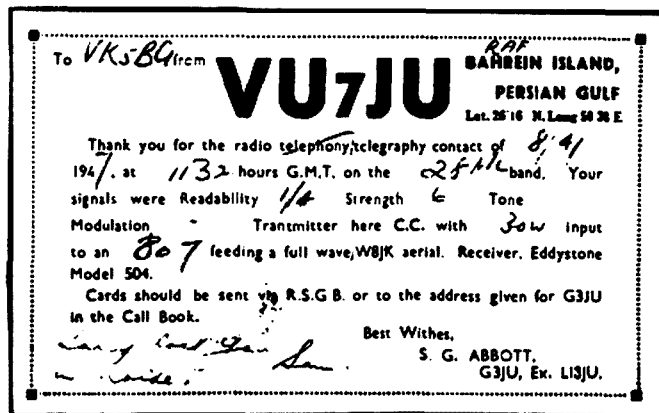 To VK5BG from
VU7JU
RAF
BAHREIN ISLAND,
PERSIAN GULF
Lat. 26 16 N. Long 50 36 E
Thank you for the radio telephony/telegraphy contact of
194 at 1132 hours G.M.T. on the 28 Mc band. Your
signals were Readability Strength 6 Tone
Modulation - Trantmitter here C.C. with 30w input
to an 807 feeding a full wave, W8JK aerial. Receiver, Eddystone
Model 504.
Cards should be sent via R.S.G B. or to the address given for G3JU
in the Call Book.
Best Withes,
S. G. ABBOTT,
G3JU, Ex. LI3JU.